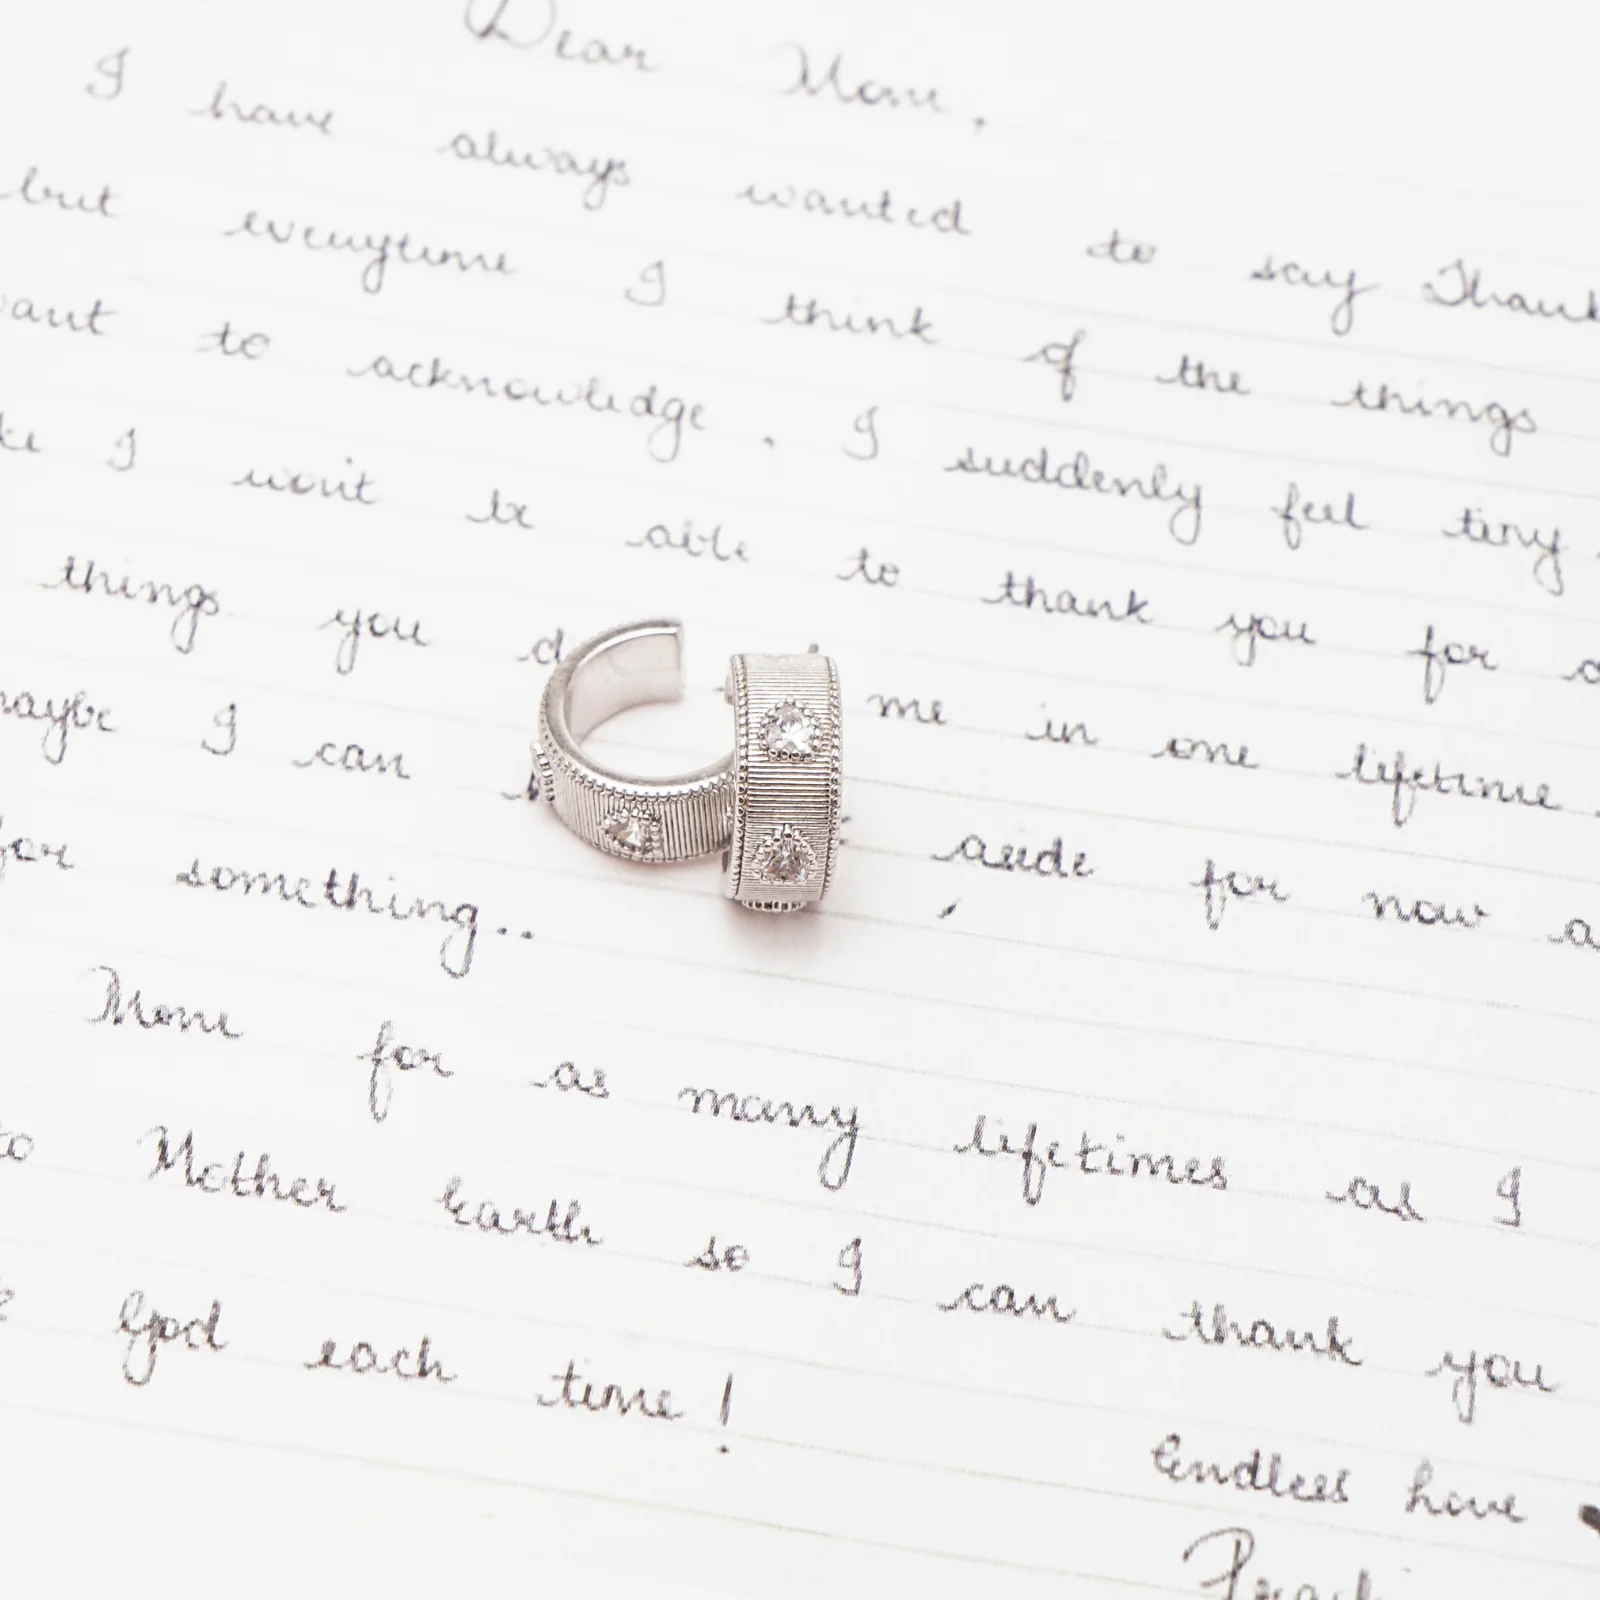 Dear Mom,
I have always wanted to say Thank
but everytime I think of the things
want to acknowledge. I suddenly feel tiny
I won't be able to thank you for
things you me in one lifetime.
maybe I can aside for now
for something..
Mom for as many lifetimes as I
to Mother Earth so I can thank you
God each time!
Endless love